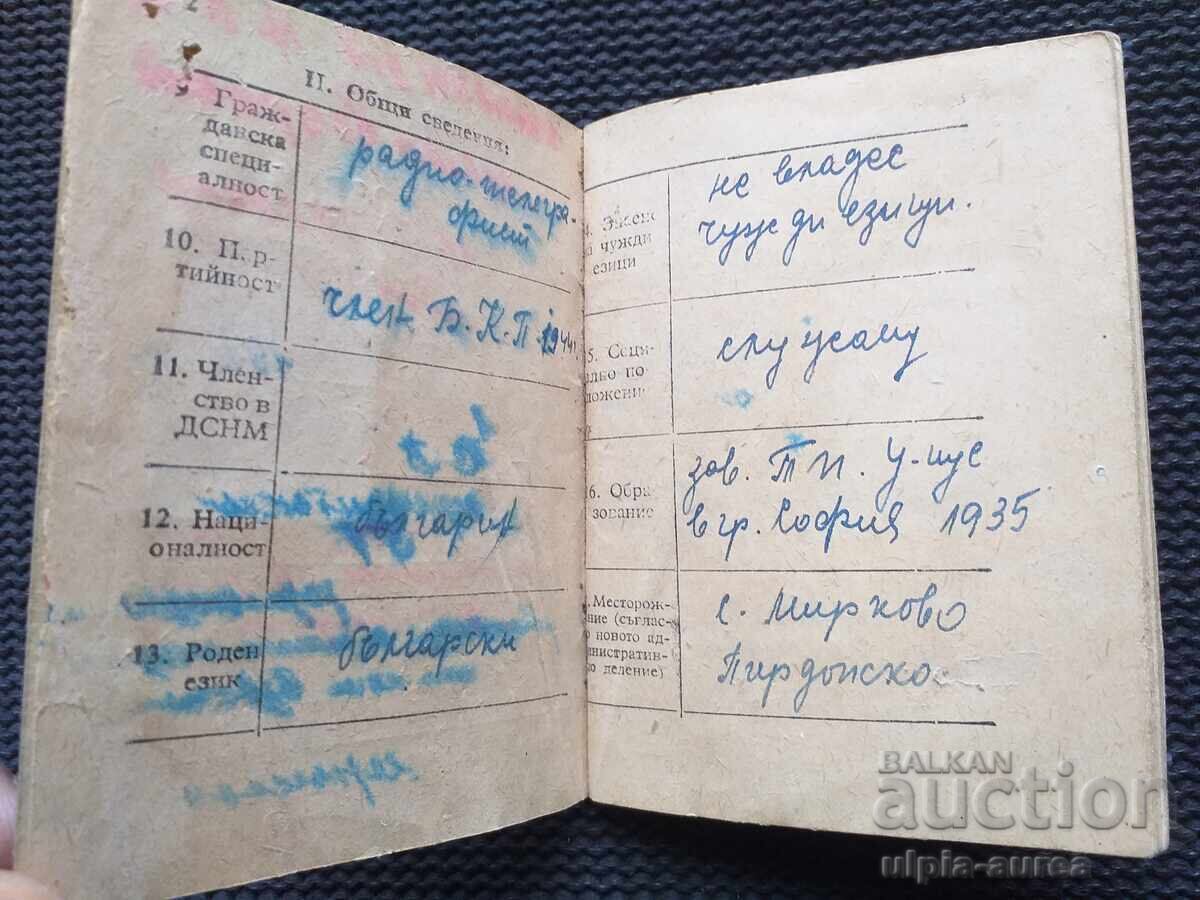 2
II. Общи сведения:
9 Граж-
данска
специ-
алност
радио-телегра-
фист
10. Пар-
тийност
член Б.К.П. 1944г.
11. Член-
ство в
ДСНМ
12. Наци-
оналност
българин
13. Роден
език
български
чужди
езици
не владее
чужди езици.
5. Соци-
ално по
ложение
служещ
16. Обра
зование
зав. Т П. У-ще
в гр. София 1935
Месторож-
ние (съглас-
о новото ад-
министратив-
о деление)
с. Мирково
Пирдопско.
BALKAN
auction
ulpia-aurea